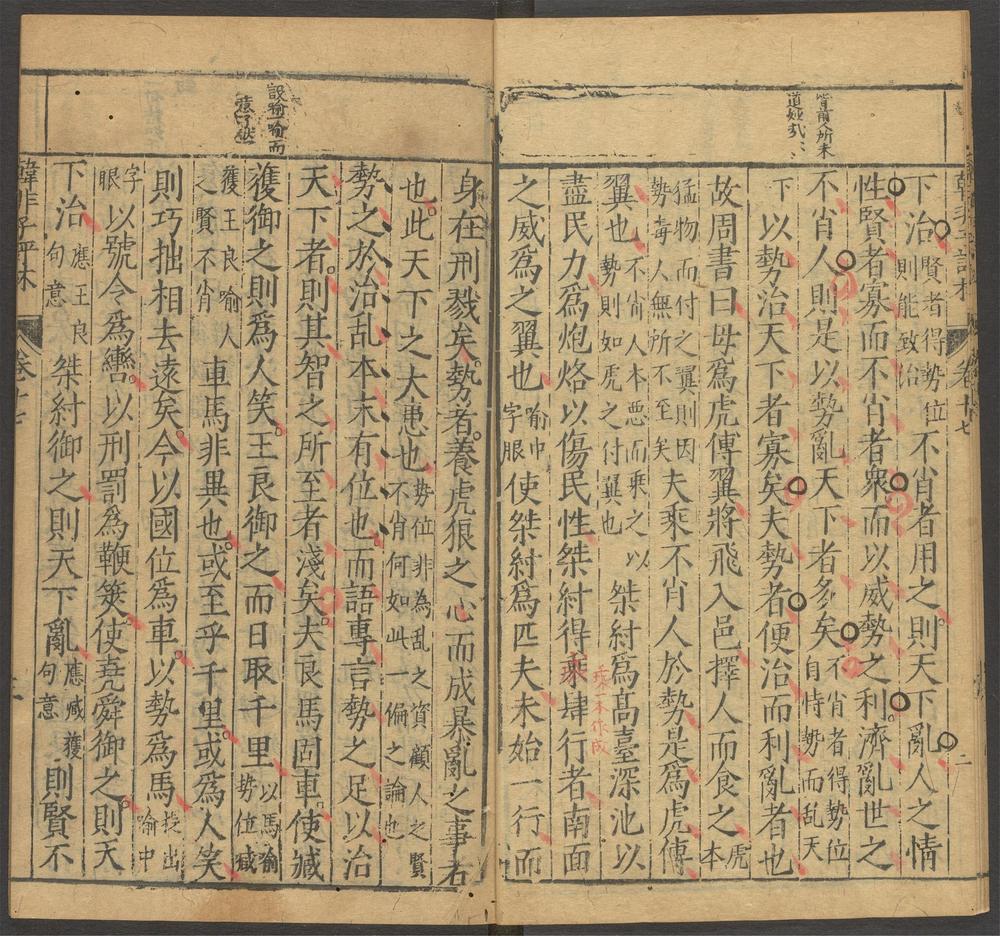 皆前人所未
道
下治賢者得勢位則能致治不肖者用之則天下亂人之情
性賢者寡而不肖者衆而以威勢之利濟亂世之
不肖人則是以勢亂天下者多矣不肖者得勢位自恃勢而乱天
下以勢治天下者寡矣夫勢者便治而利亂者也
故周書曰毋爲虎傅翼將飛入邑擇人而食之虎本
猛物而付之翼則因勢毒人無所不至矣夫乘不肖人於勢是爲虎傅
翼也不肖人本悪而乗之以勢則如虎之付翼也桀紂爲高臺深池以
盡民力爲炮烙以傷民性桀紂得乘肆行者南面
乘一本作成
之威爲之翼也喻中字眼使桀紂爲匹夫未始一行而
卷十七
二
設喻喻而
身在刑戮矣勢者養虎狼之心而成暴亂之事者
也此天下之大患也勢位非為乱之資顧人之賢不肖何如此一偏之論也
勢之於治乱本末有位也而語專言勢之足以治
天下者則其智之所至者淺矣夫良馬固車使臧
獲御之則爲人笑王良御之而日取千里以馬喻勢位臧
獲王良喻人之賢不肖車馬非異也或至乎千里或爲人笑
則巧拙相去遠矣今以國位爲車以勢爲馬提出喻中
字眼以號令爲轡以刑罰爲鞭筴使堯舜御之則天
下治應王良句意桀紂御之則天下亂應臧獲句意則賢不
韓非子評林
卷十七